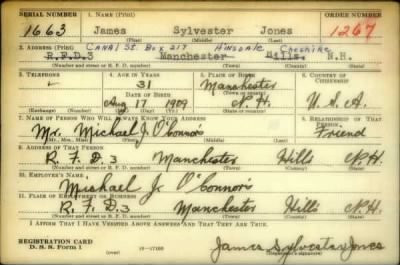 SERIAL NUMBER 1. NAME (Print) ORDER NUMBER
1663 James Sylvester Jones 1267
(First) (Middle) (Last)
2. ADDRESS (Print) Canal St. Box 217 Hinsdale Cheshire
R.F.D.3 Manchester Hills. N.H.
(Number and street or R. F. D. number) (Town) (County) (State)
3. TELEPHONE 4. AGE IN YEARS 5. PLACE OF BIRTH 6. COUNTRY OF CITIZENSHIP
31 Manchester
DATE OF BIRTH (Town or county)
Aug 17 1909 N.H. U.S.A.
(Exchange) (Number) (Mo.) (Day) (Yr.) (State or country)
7. NAME OF PERSON WHO WILL ALWAYS KNOW YOUR ADDRESS 8. RELATIONSHIP OF THAT PERSON
Mr. Michael J. O'Connors Friend
(Mr., Mrs., Miss) (First) (Middle) (Last)
9. ADDRESS OF THAT PERSON
R.F.D. 3 Manchester Hills N.H.
(Number and street or R. F. D. number) (Town) (County) (State)
10. EMPLOYER'S NAME
Michael J. O'Connors
11. PLACE OF EMPLOYMENT OR BUSINESS
R.F.D. 3 Manchester Hills N.H.
(Number and street or R. F. D. number) (Town) (County) (State)
I AFFIRM THAT I HAVE VERIFIED ABOVE ANSWERS AND THAT THEY ARE TRUE.
REGISTRATION CARD
D. S. S. Form 1 (over) James Sylvester Jones
(Registrant's signature)